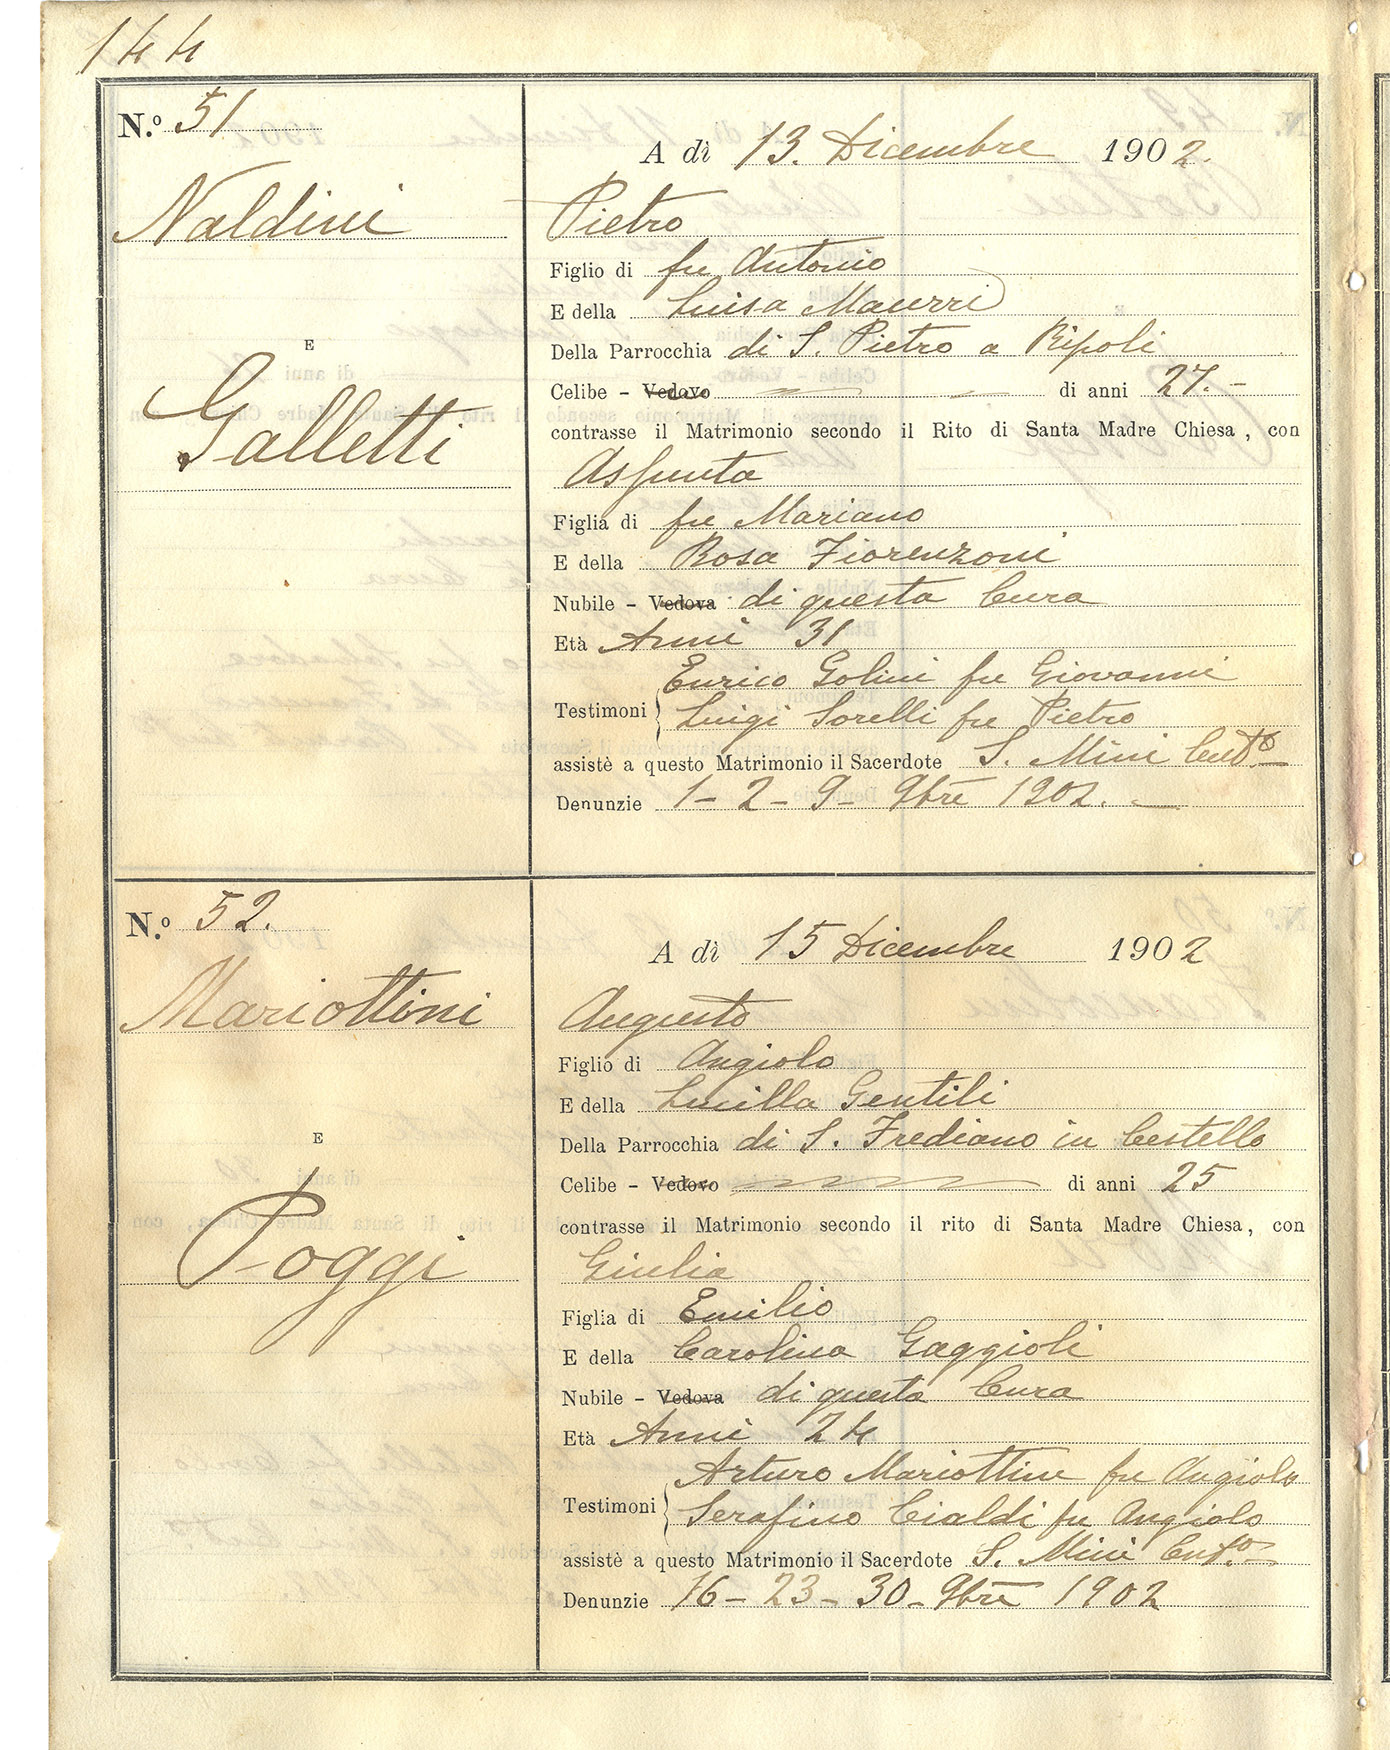 144
N.º 51
A dì 13. Dicembre 1902.
Naldini
Pietro
Figlio di fu Antonio
E della Luisa Maurri
E
Della Parrocchia di S. Pietro a Ripoli
Celibe - Vedovo di anni 27.-
Galletti
contrasse il Matrimonio secondo il Rito di Santa Madre Chiesa, con
Assunta
Figlia di fu Mariano
E della Rosa Fiorenzoni
Nubile - Vedova di questa Cura
Età Anni 31
Enrico Golini fu Giovanni
Testimoni Luigi Sorelli fu Pietro
assistè a questo Matrimonio il Sacerdote S. Mini
Denunzie 1 - 2 - 9 - 9bre 1902. -
N.º 52.
A dì 15 Dicembre 1902
Mariottini
Augusto
Figlio di Angiolo
E della Lucilla Gentili
E
Della Parrocchia di S. Frediano in Cestello
Celibe - Vedovo di anni 25
contrasse il Matrimonio secondo il rito di Santa Madre Chiesa, con
Poggi
Giulia
Figlia di Emilio
E della Carolina Gaggioli
Nubile - Vedova di questa Cura
Età Anni 24
Arturo Mariottini fu Angiolo
Testimoni Serafino Cialdi fu Angiolo
assistè a questo Matrimonio il Sacerdote S. Mini
Denunzie 16 - 23 - 30 - 9bre 1902